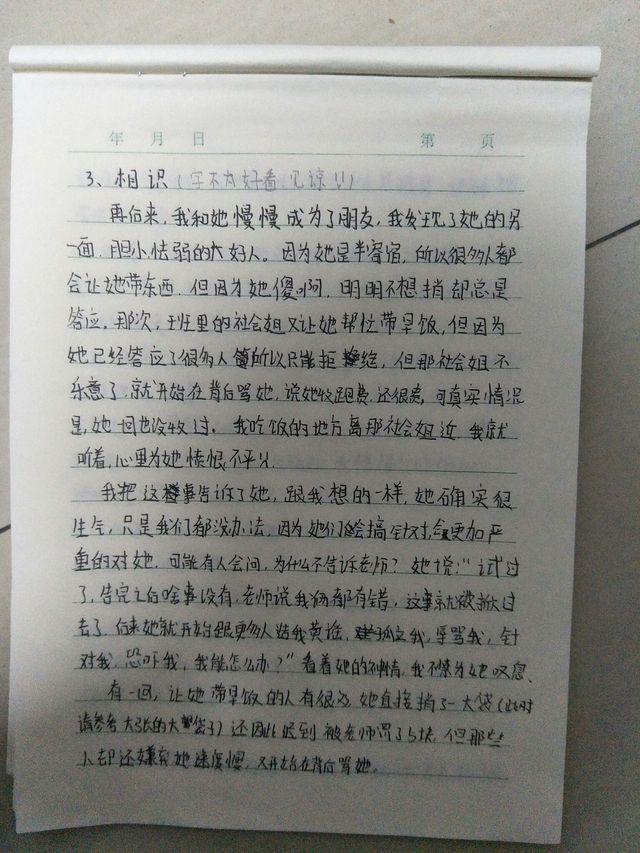 年 月 日 第 页
3、相识(字不太好看 见谅!!)
再后来,我和她慢慢成为了朋友,我发现了她的另
一面,胆小怯弱的大好人。因为她是半寄宿,所以很多人都
会让她带东西,但因为她傻啊,明明不想捎却总是
答应。那次,班里的社会姐又让她帮忙带早饭,但因为
她已经答应了很多人所以只能拒绝,但那社会姐不
乐意了,就开始在背后骂她,说她收跑费,还很贵,可真实情况
是,她一回也没收过。我吃饭的地方离那社会姐近,我就
听着,心里为她愤恨不平
我把这些事告诉了她,跟我想的一样,她确实很
生气,只是我们都没办法,因为她们会搞针对,会更加严
重的对她,可能有人会问,为什么不告诉老师?她说:“试过
了,告完之后啥事没有,老师说我俩都有错,这事就被掀过
去了,后来她就开始跟更多人造我黄谣,孤立我,辱骂我,针
对我,恐吓我,我能怎么办?”看着她的神情,我不禁为她叹息、
有一回,让她带早饭的人有很多,她直接捎了一大袋(此时
请参考大张的大袋子)还因此迟到被老师罚了5块,但那些
人却还嫌弃她速度慢,又开始在背后骂她。